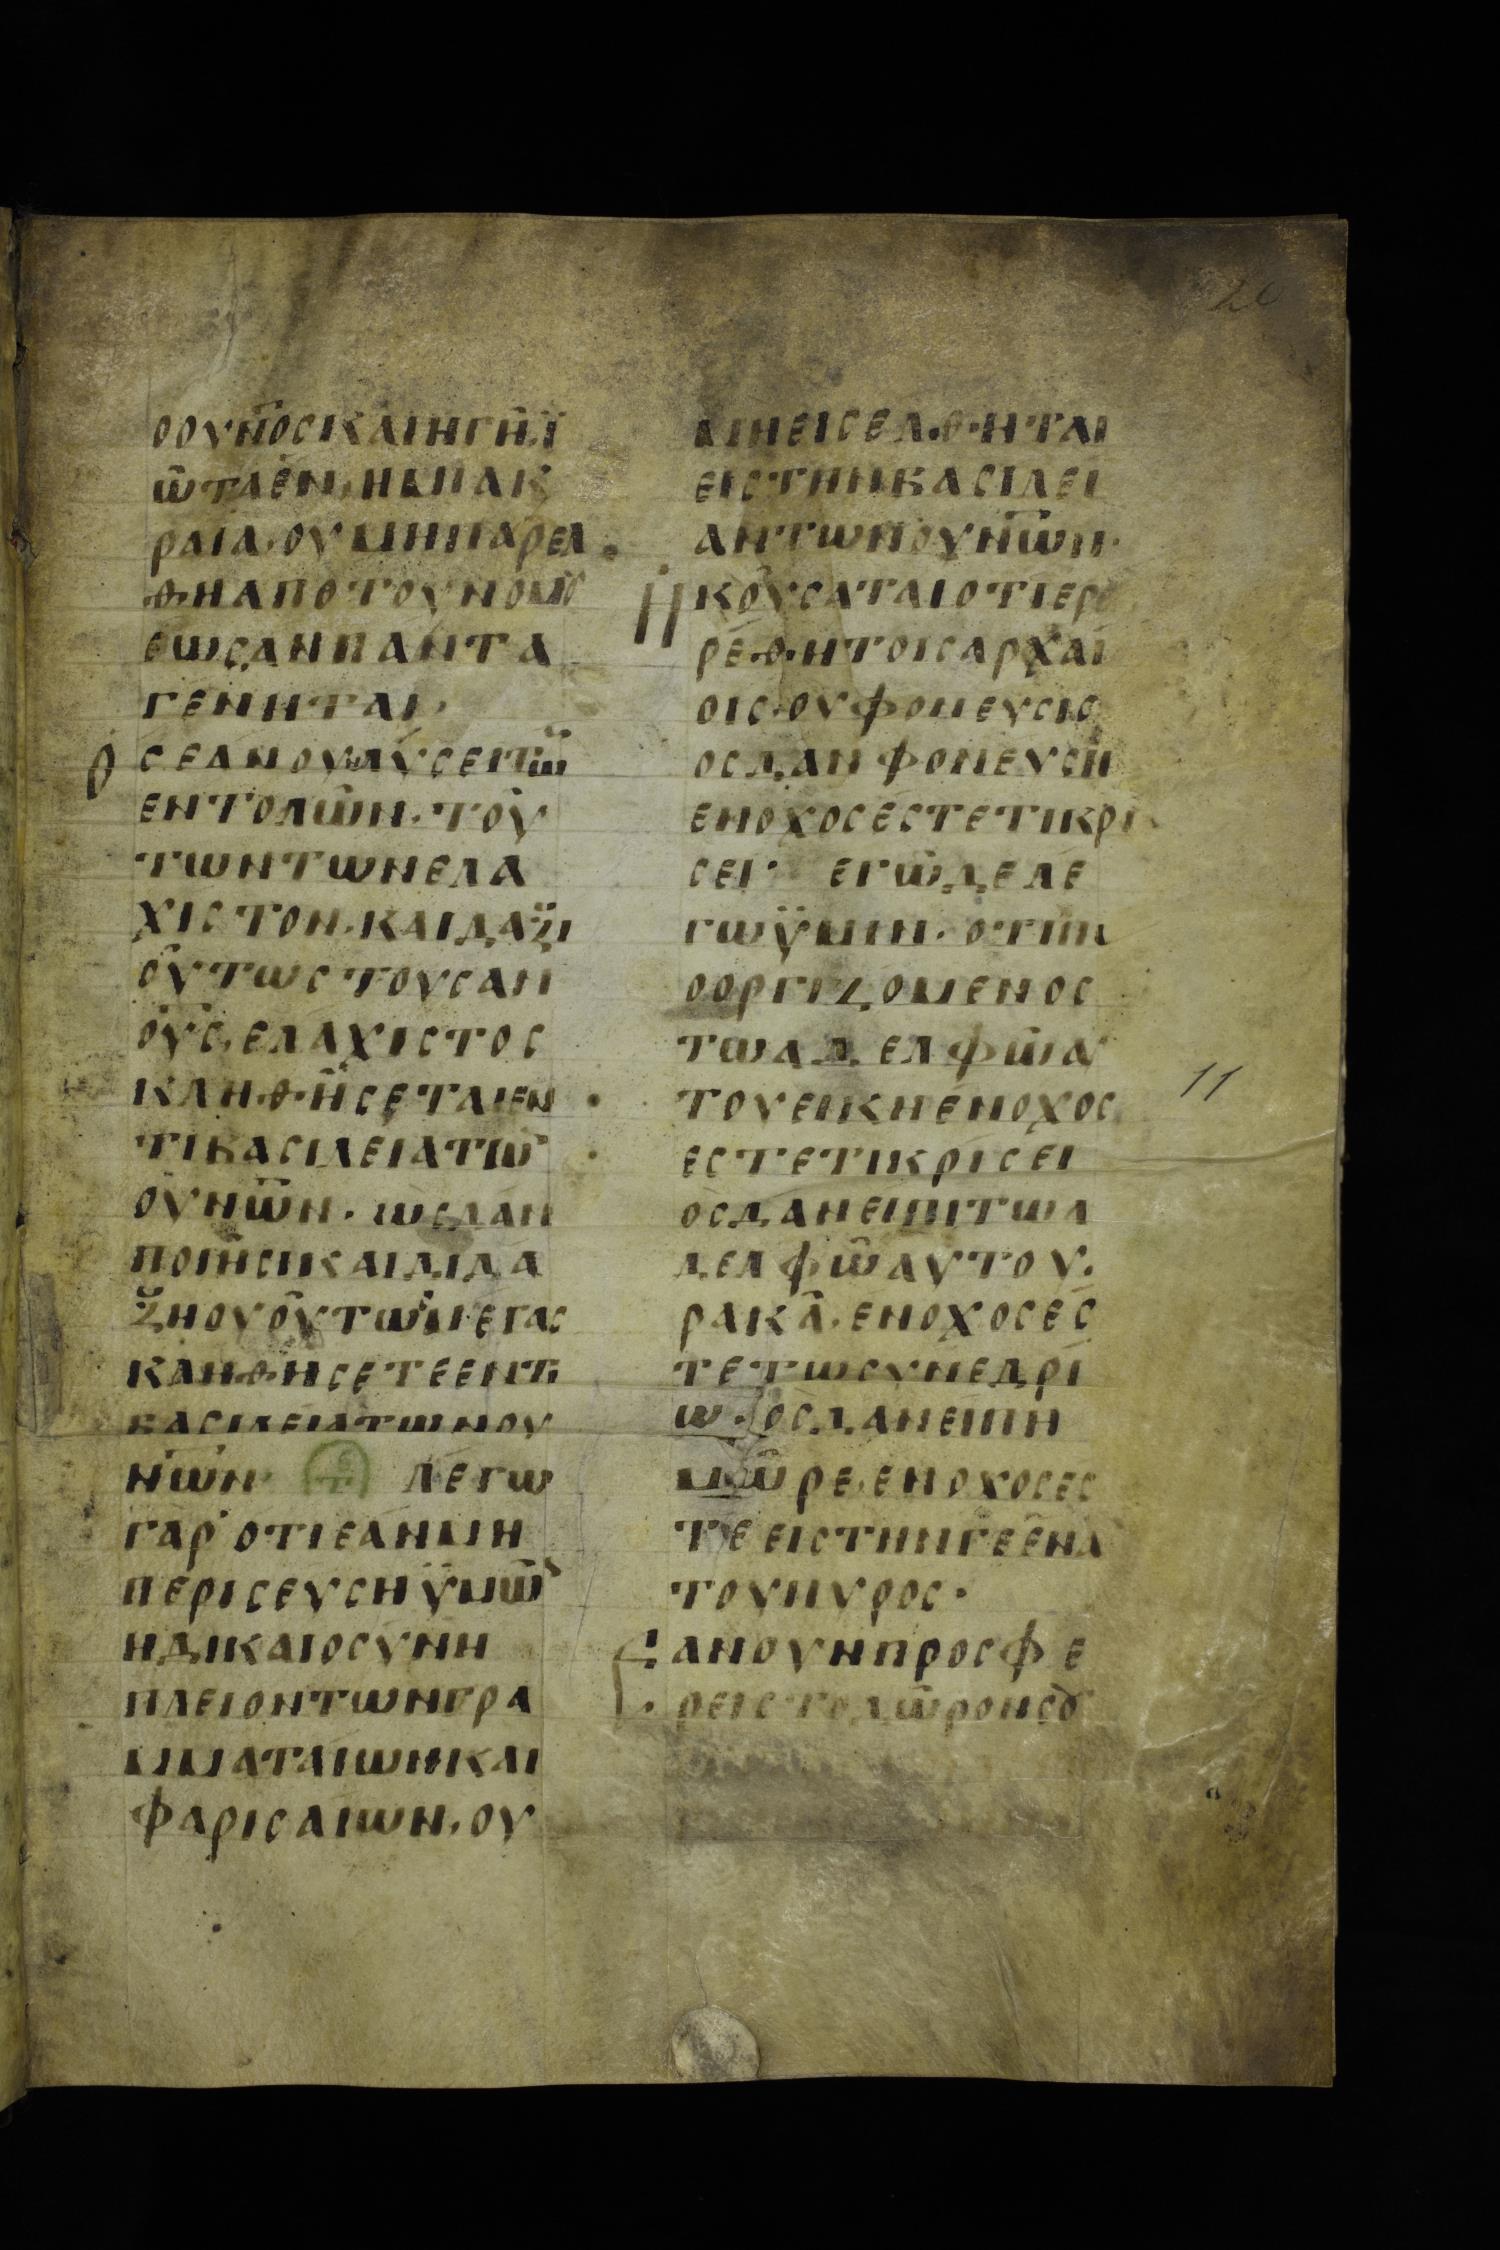 ΟΟΥΝΟΣ ΚΑΙ Η ΓΗ Ϊ
ΩΤΑ ΕΝ Η ΜΗΑ Κ
ΡΑΙΑ· ΟΥ ΜΗ ΠΑΡΕΛ
ΘΗ ΑΠΟ ΤΟΥ ΝΟΜΟΥ
ΕΩΣ ΑΝ ΠΑΝΤΑ
ΓΕΝΗΤΑΙ·
ΟΣ ΕΑΝ ΟΥΝ ΛΥΣΕΙ ΤΩ
ΕΝΤΟΛΩΝ· ΤΟΥ
ΤΩΝ ΤΩΝ ΕΛΑ
ΧΙΣΤΟΝ· ΚΑΙ ΔΑΞΙ
ΟΥΤΩΣ ΤΟΥΣ ΑΝ
ΟΥΣ· ΕΛΑΧΙΣΤΟΣ
ΚΛΗΘΗΣΕΤΑΙ ΕΝ
ΤΙ ΒΑΣΙΛΕΙΑ ΤΩ
ΟΥΝΩΝ· ΩΣ ΔΑΝ
ΠΟΙΗΣΙ ΚΑΙ ΔΙΔΑ
ΞΗ ΟΥ ΟΥΤΩΣ ΜΕΓΑΣ
ΚΛΗΘΗΣΕΤΕ ΕΝ ΤΗ
ΒΑΣΙΛΕΙΑ ΤΩΝ ΟΥ
ΝΩΝ· ΛΕΓΩ
ΓΑΡ ΟΤΙ ΕΑΝ ΜΗ
ΠΕΡΙΣΕΥΣΗ ΫΜΩ
Η ΔΙΚΑΙΟΣΥΝΗ
ΠΛΕΙΟΝ ΤΩΝ ΓΡΑ
ΜΜΑΤΑΙΩΝ ΚΑΙ
ΦΑΡΙΣΑΙΩΝ· ΟΥ
ΜΗ ΕΙΣΕΛΘΗΤΑΙ
ΕΙΣ ΤΗΝ ΒΑΣΙΛΕΙ
ΑΝ ΤΩΝ ΟΥΝΩΝ·
ΗΚΟΥΣΑΤΑΙ ΟΤΙ ΕΡ
ΡΕΘΗ ΤΟΙΣ ΑΡΧΑΙ
ΟΙΣ· ΟΥ ΦΟΝΕΥΣΙΣ
ΟΣ ΔΑΝ ΦΟΝΕΥΣΗ
ΕΝΟΧΟΣ ΕΣΤΕ ΤΙ ΚΡΙ
ΣΕΙ· ΕΓΩ ΔΕ ΛΕ
ΓΩ ΫΜΙΝ· ΟΤΙ ΠΑ
Ο ΟΡΓΙΖΟΜΕΝΟΣ
ΤΩ ΑΔΕΛΦΩ ΑΥ
ΤΟΥ ΕΙΚΗ ΕΝΟΧΟΣ
ΕΣΤΕ ΤΙ ΚΡΙΣΕΙ
ΟΣ ΔΑΝ ΕΙΠΙ ΤΩ Α
ΔΕΛΦΩ ΑΥΤΟΥ·
ΡΑΚΑ· ΕΝΟΧΟΣ ΕΣ
ΤΕ ΤΩ ΣΥΝΕΔΡΙ
Ω· ΟΣ ΔΑΝ ΕΙΠΗ
ΜΩΡΕ· ΕΝΟΧΟΣ ΕΣ
ΤΕ ΕΙΣ ΤΗΝ ΓΕΕΝΑ
ΤΟΥ ΠΥΡΟΣ·
ΕΑΝ ΟΥΝ ΠΡΟΣΦΕ
ΡΕΙΣ ΤΟ ΔΩΡΟΝ ΣΟΥ
11